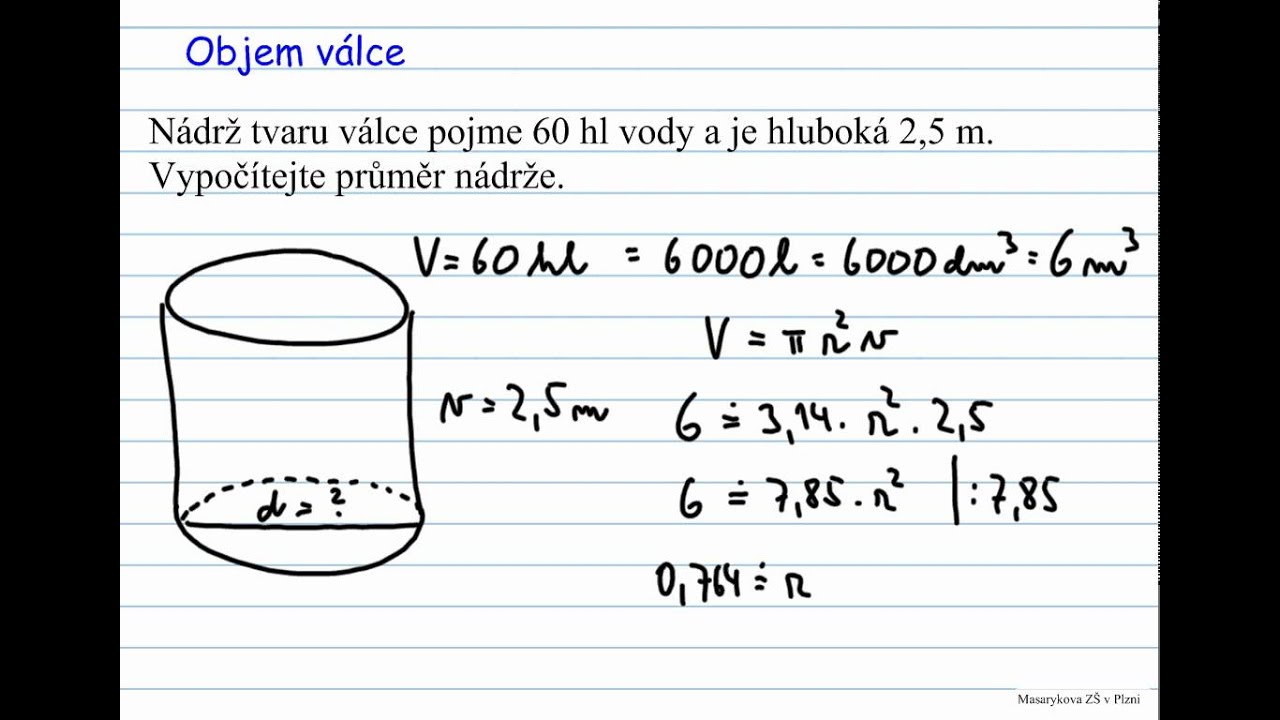 Objem válce
Nádrž tvaru válce pojme 60 hl vody a je hluboká 2,5 m.
Vypočítejte průměr nádrže.
V = 60 hl = 6000 l = 6000 dm³ = 6 m³
V = π r² v
v = 2,5 m
6 ≐ 3,14 . r² . 2,5
6 ≐ 7,85 . r² | : 7,85
d = ?
0,764 ≐ r
Masarykova ZŠ v Plzni